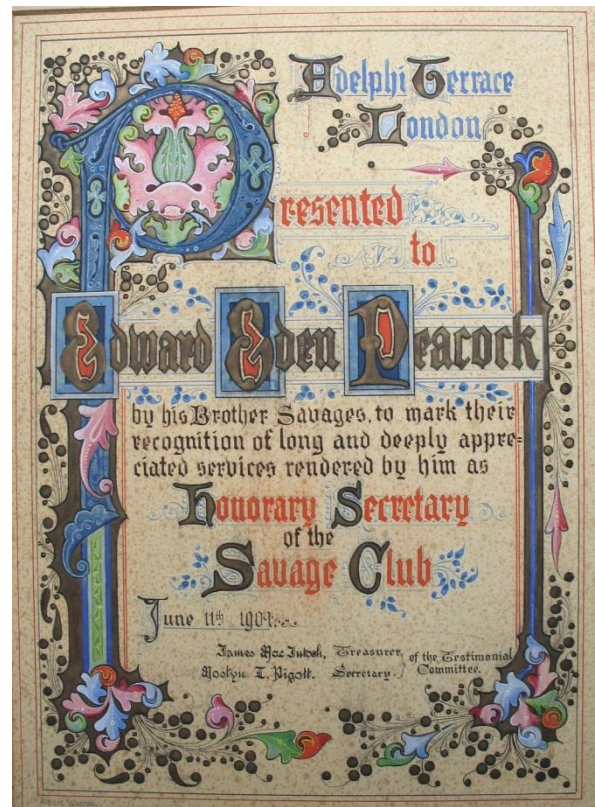 Adelphi Terrace
London
Presented
to
Edward Eden Peacock
by his Brother Savages, to mark their
recognition of long and deeply appre=
ciated services rendered by him as
Honorary Secretary
of the
Savage Club
June 11th
James Mac Intosh, Treasurer,
Mostyn T. Pigott. Secretary.
of the Testimonial
Committee.
Albert Warren